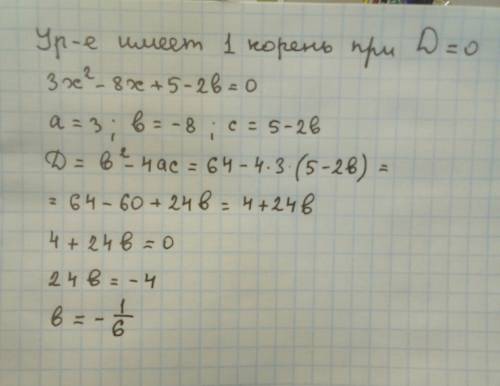 Ур-е имеет 1 корень при D=0
3x² - 8x + 5 - 2в = 0
a = 3 ; в = -8 ; c = 5 - 2в
D = в² - 4ac = 64 - 4·3·(5-2в) =
= 64 - 60 + 24в = 4 + 24в
4 + 24в = 0
24в = -4
в = - 1/6